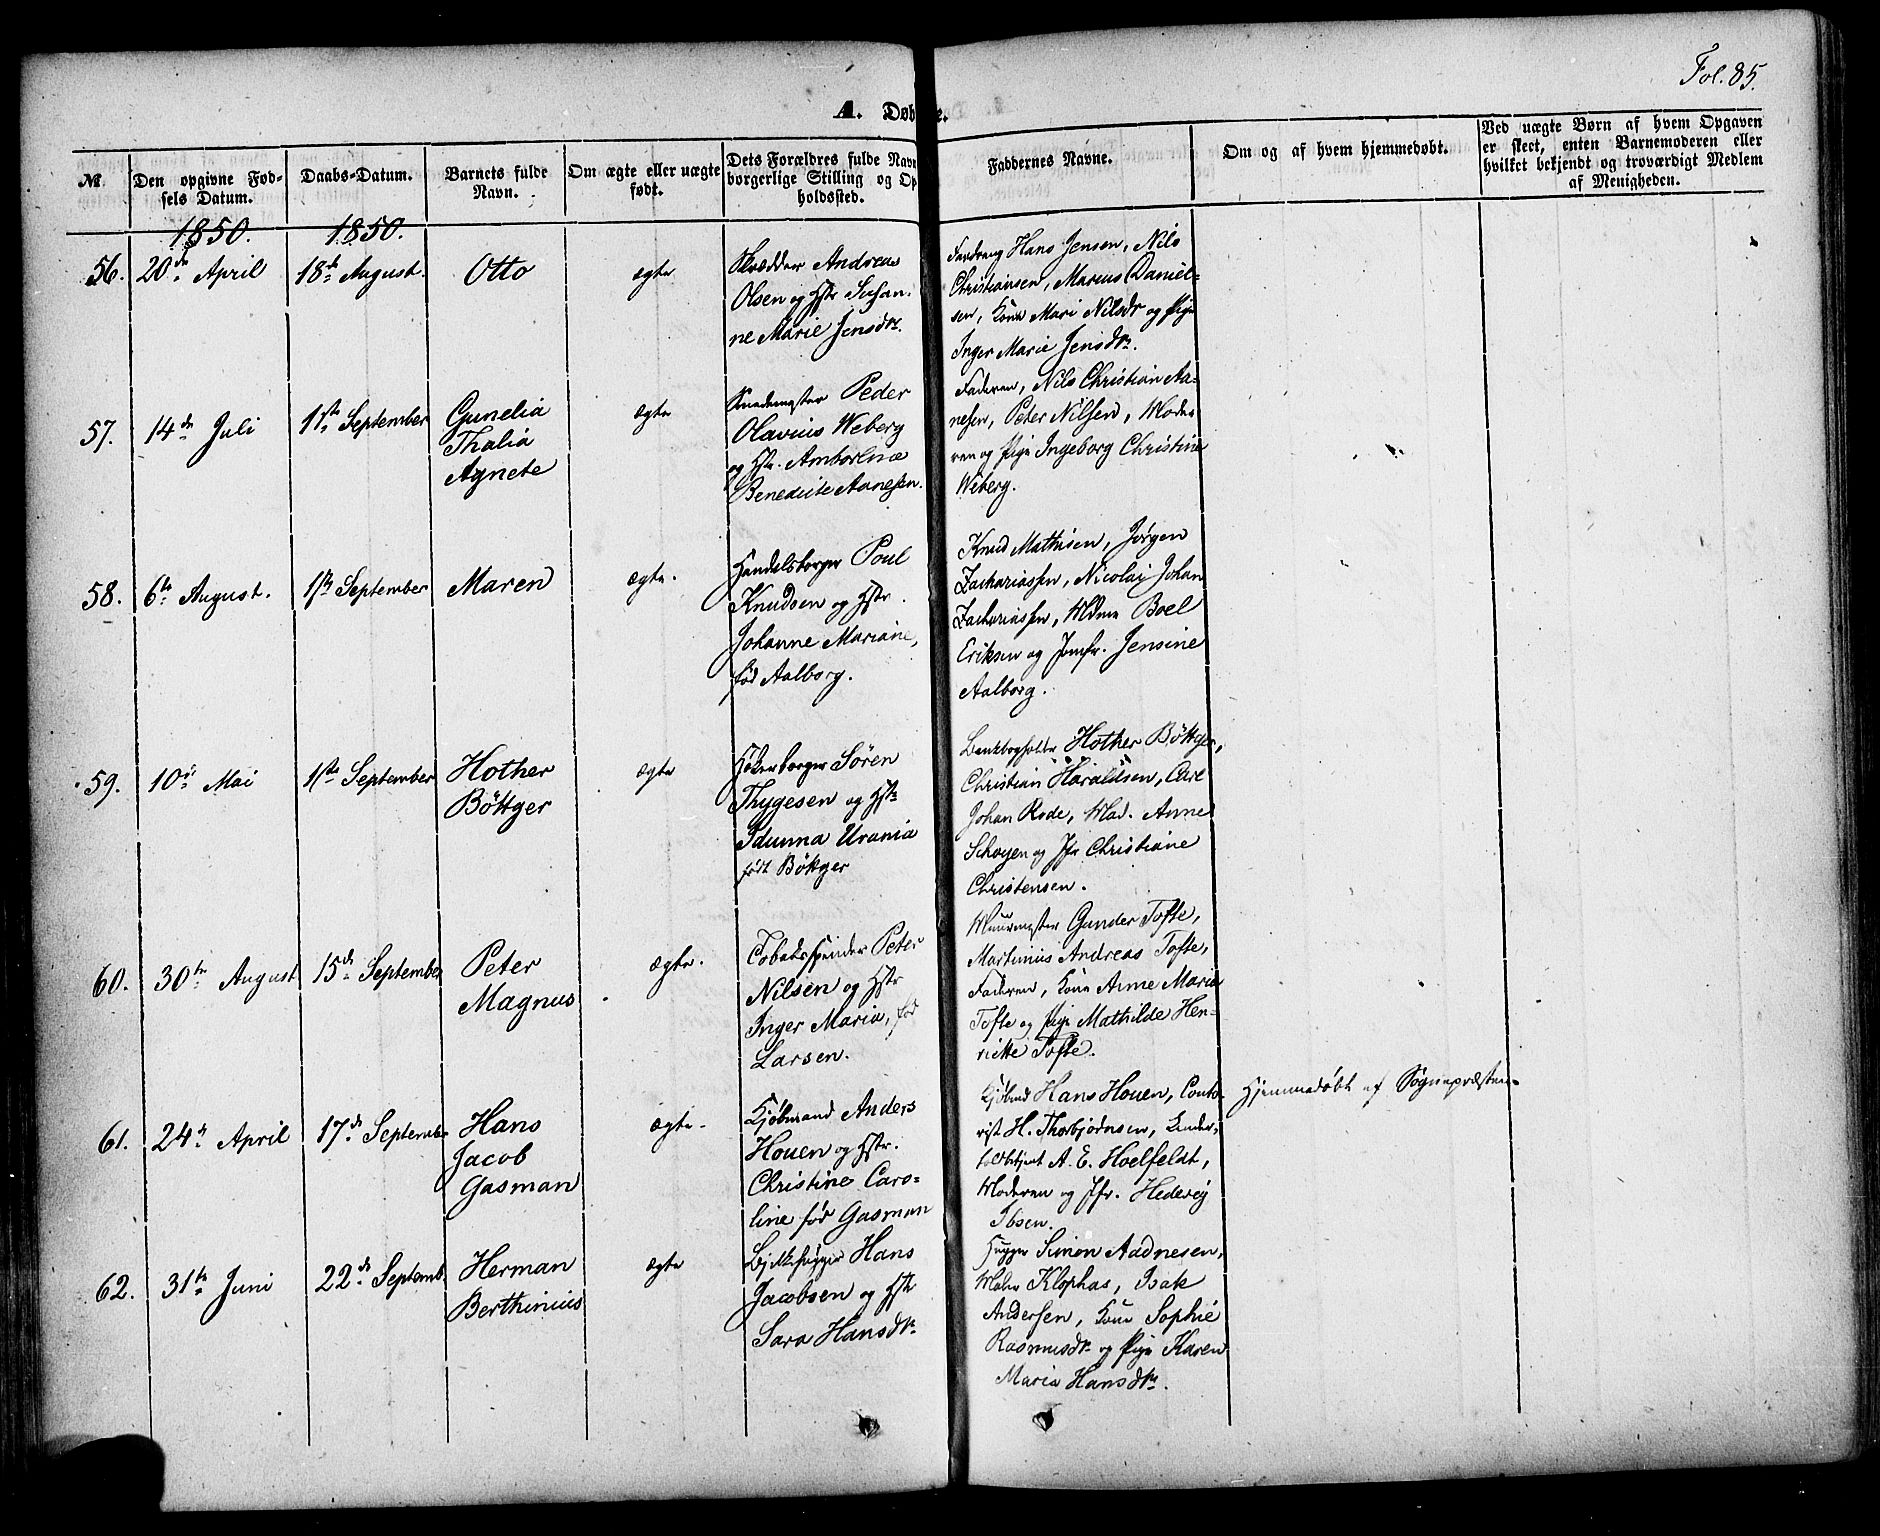 Fol. 85.
A. Døbte.
No.
Den opgivne Fød-
sels Datum.
Daabs-Datum.
Barnets fulde
Navn.
Om ægte eller uægte
født.
Dets Forældres fulde Navn
borgerlige Stilling og Op
holdssted.
Faddernes Navne.
Om og af hvem hjemmedøbt.
Ved uægte Børn af hvem Opgaven
er skeet, enten Barnemoderen eller
hvilket bekjendt og troværdigt Medlem
af Menigheden.
1850.
1850.
56.
20de April
18de August.
Otto
ægte
Skrædder Andreas
Olsen og Hstr Susan-
ne Marie Jensdtr.
Hans Jensen, Nils
Christiansen, Marius Daniel-
sen, Kone Mari Nilsdr og Pige
Inger Marie Jensdtr.
57.
14de Juli
1ste September
Gunelia
Thalia
Agnete
ægte
Smedemester Peder
Olavius Weberg
og Hstr. Amborlnæ
Benedicte Aanesen.
Faderen, Nils Christian Aa-
nesen, Peter Nilsen, Mode-
ren og Pige Ingeborg Christine
Weberg.
58.
6te August.
1ste September
Maren
ægte.
Handelsborger Poul
Knudsen og Hstr.
Johanne Mariane,
født Aalborg.
Knud Mathisen, Jørgen
Zachariassen, Nicolai Johan
Zachariassen, Mdme Boel
Eriksen og Jomfr. Jensine
Aalborg.
59.
10de Mai
1ste September
Hother
Böttger
ægte
Høkerborger Søren
Thygesen og Hstr
Idunna Urania
født Böttger
Bankbogholder Hother Böttger,
Christian Haraldsen, Carl
Johan Rode, Mad. Anne
Schøyen og Jfr Christiane
Christensen.
60.
30te August
15de September
Peter
Magnus
ægte.
Tobaksspinder Peter
Nilsen og Hstr
Inger Maria, før
Larsen.
Muurmester Gunder Tofte,
Martinius Andreas Tofte,
Faderen, Kone Anne Maria
Tofte og Pige Mathilde Hen-
riette Tofte.
61.
24de April
17de September
Hans
Jacob
Gasman
ægte.
Kjøbmand Anders
Houen og Hstr.
Christine Caro-
line før Gasman
Kjøbmd Hans Houen, Conto-
rist H. Thorbjørnsen,
A. E. Hoelfeldt,
Moderen og Jfr. Hedevig
Ibsen.
Hjemmedøbt af Sognepræsten
62.
31te Juni
22de Septemb.
Herman
Berthinius
ægte
Bjelkehugger Hans
Jacobsen og Hstr
Sara Hansdtr
Hugger Simon Aadnesen,
Maler Klophas, Isak
Andersen, Kone Sophie
Rasmusdtr og Pige Karen
Maria Hansdtr.